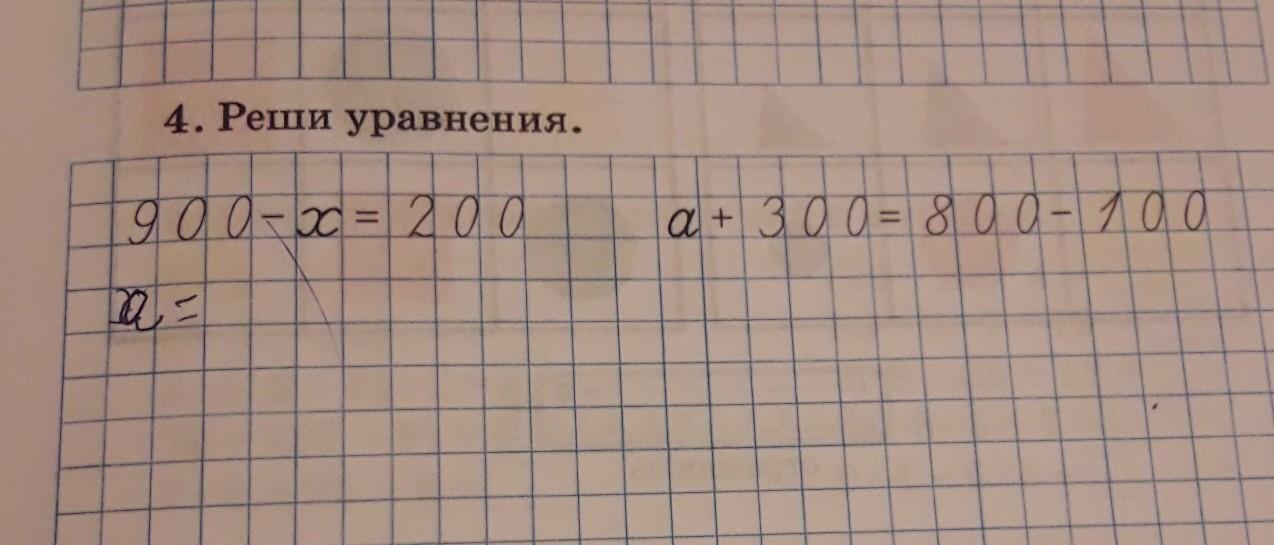 4. Реши уравнения.
900 - x = 200
a + 300 = 800 - 100
x =